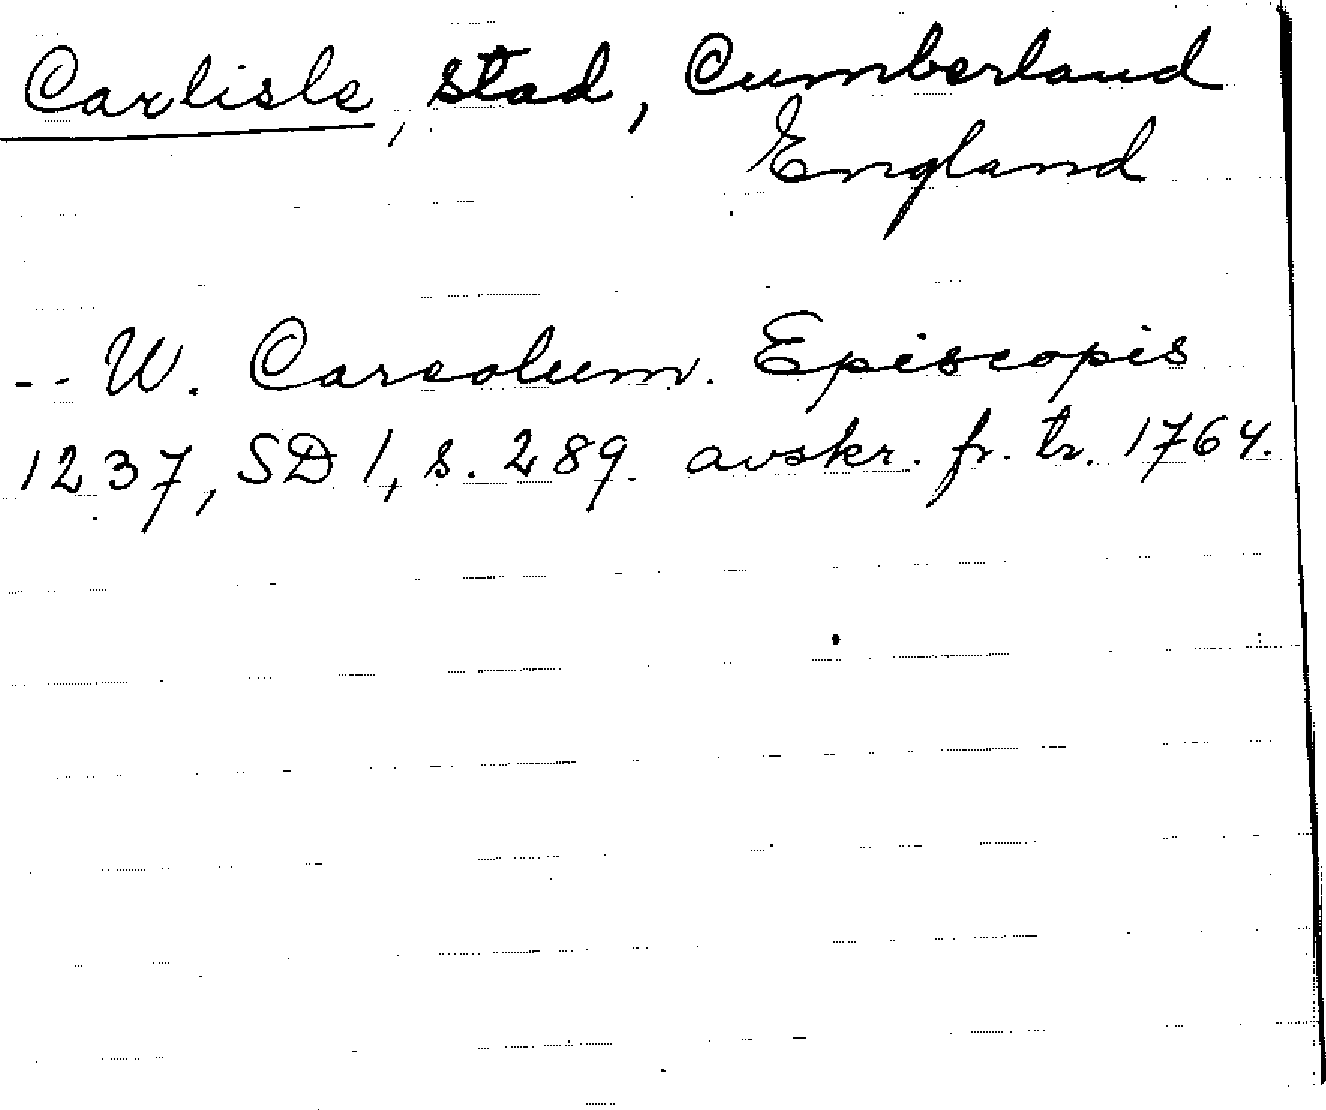 Carlisle, stad, Cumberland
England
-- W. Careolum. Episcopis
1237, SD 1, s. 289. avskr. fr. tr. 1764.